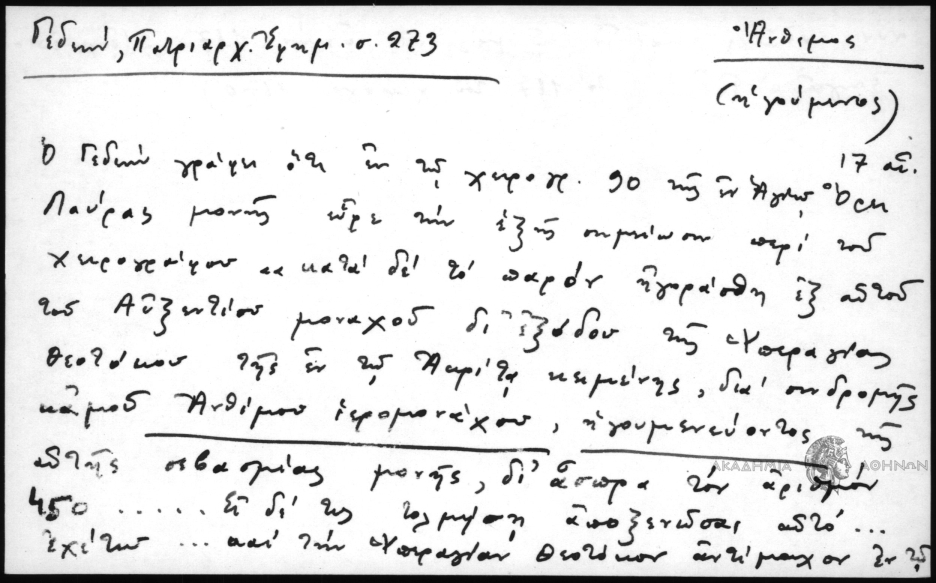 Γεδεών, Πατριαρχ. Εφημ. σ. 273
Ἄνθιμος
(ἡγούμενος)
17 αἰ.
Ὁ Γεδεών γράφει ὅτι ἐν τῷ χειρογρ. 90 τῆς ἐν Ἁγίῳ Ὄρει
Λαύρας μονῆς εὗρε τὴν ἑξῆς σημείωσιν περί τοῦ
χειρογράφου "κατά δέ τό παρόν ἠγοράσθη ἐξ αὐτοῦ
τοῦ Αὐξεντίου μοναχοῦ δι' ἐξόδου τῆς Ὑπεραγίας
Θεοτόκου τῆς ἐν τῷ Ἀκρίτᾳ κειμένης, διά συνδρομῆς
κἀμοῦ Ἀνθίμου ἱερομονάχου, ἡγουμενεύοντος τῆς
αὐτῆς σεβασμίας μονῆς, δι' ἄσπρα τόν ἀριθμόν
450 ...... Εἰ δέ τις τολμήσῃ ἀποξενῶσαι αὐτό ...
ἐχέτω ... καί τήν Ὑπεραγίαν Θεοτόκον ἀντίμαχον ἐν τῷ
ΑΚΑΔΗΜΙΑ ΑΘΗΝΩΝ